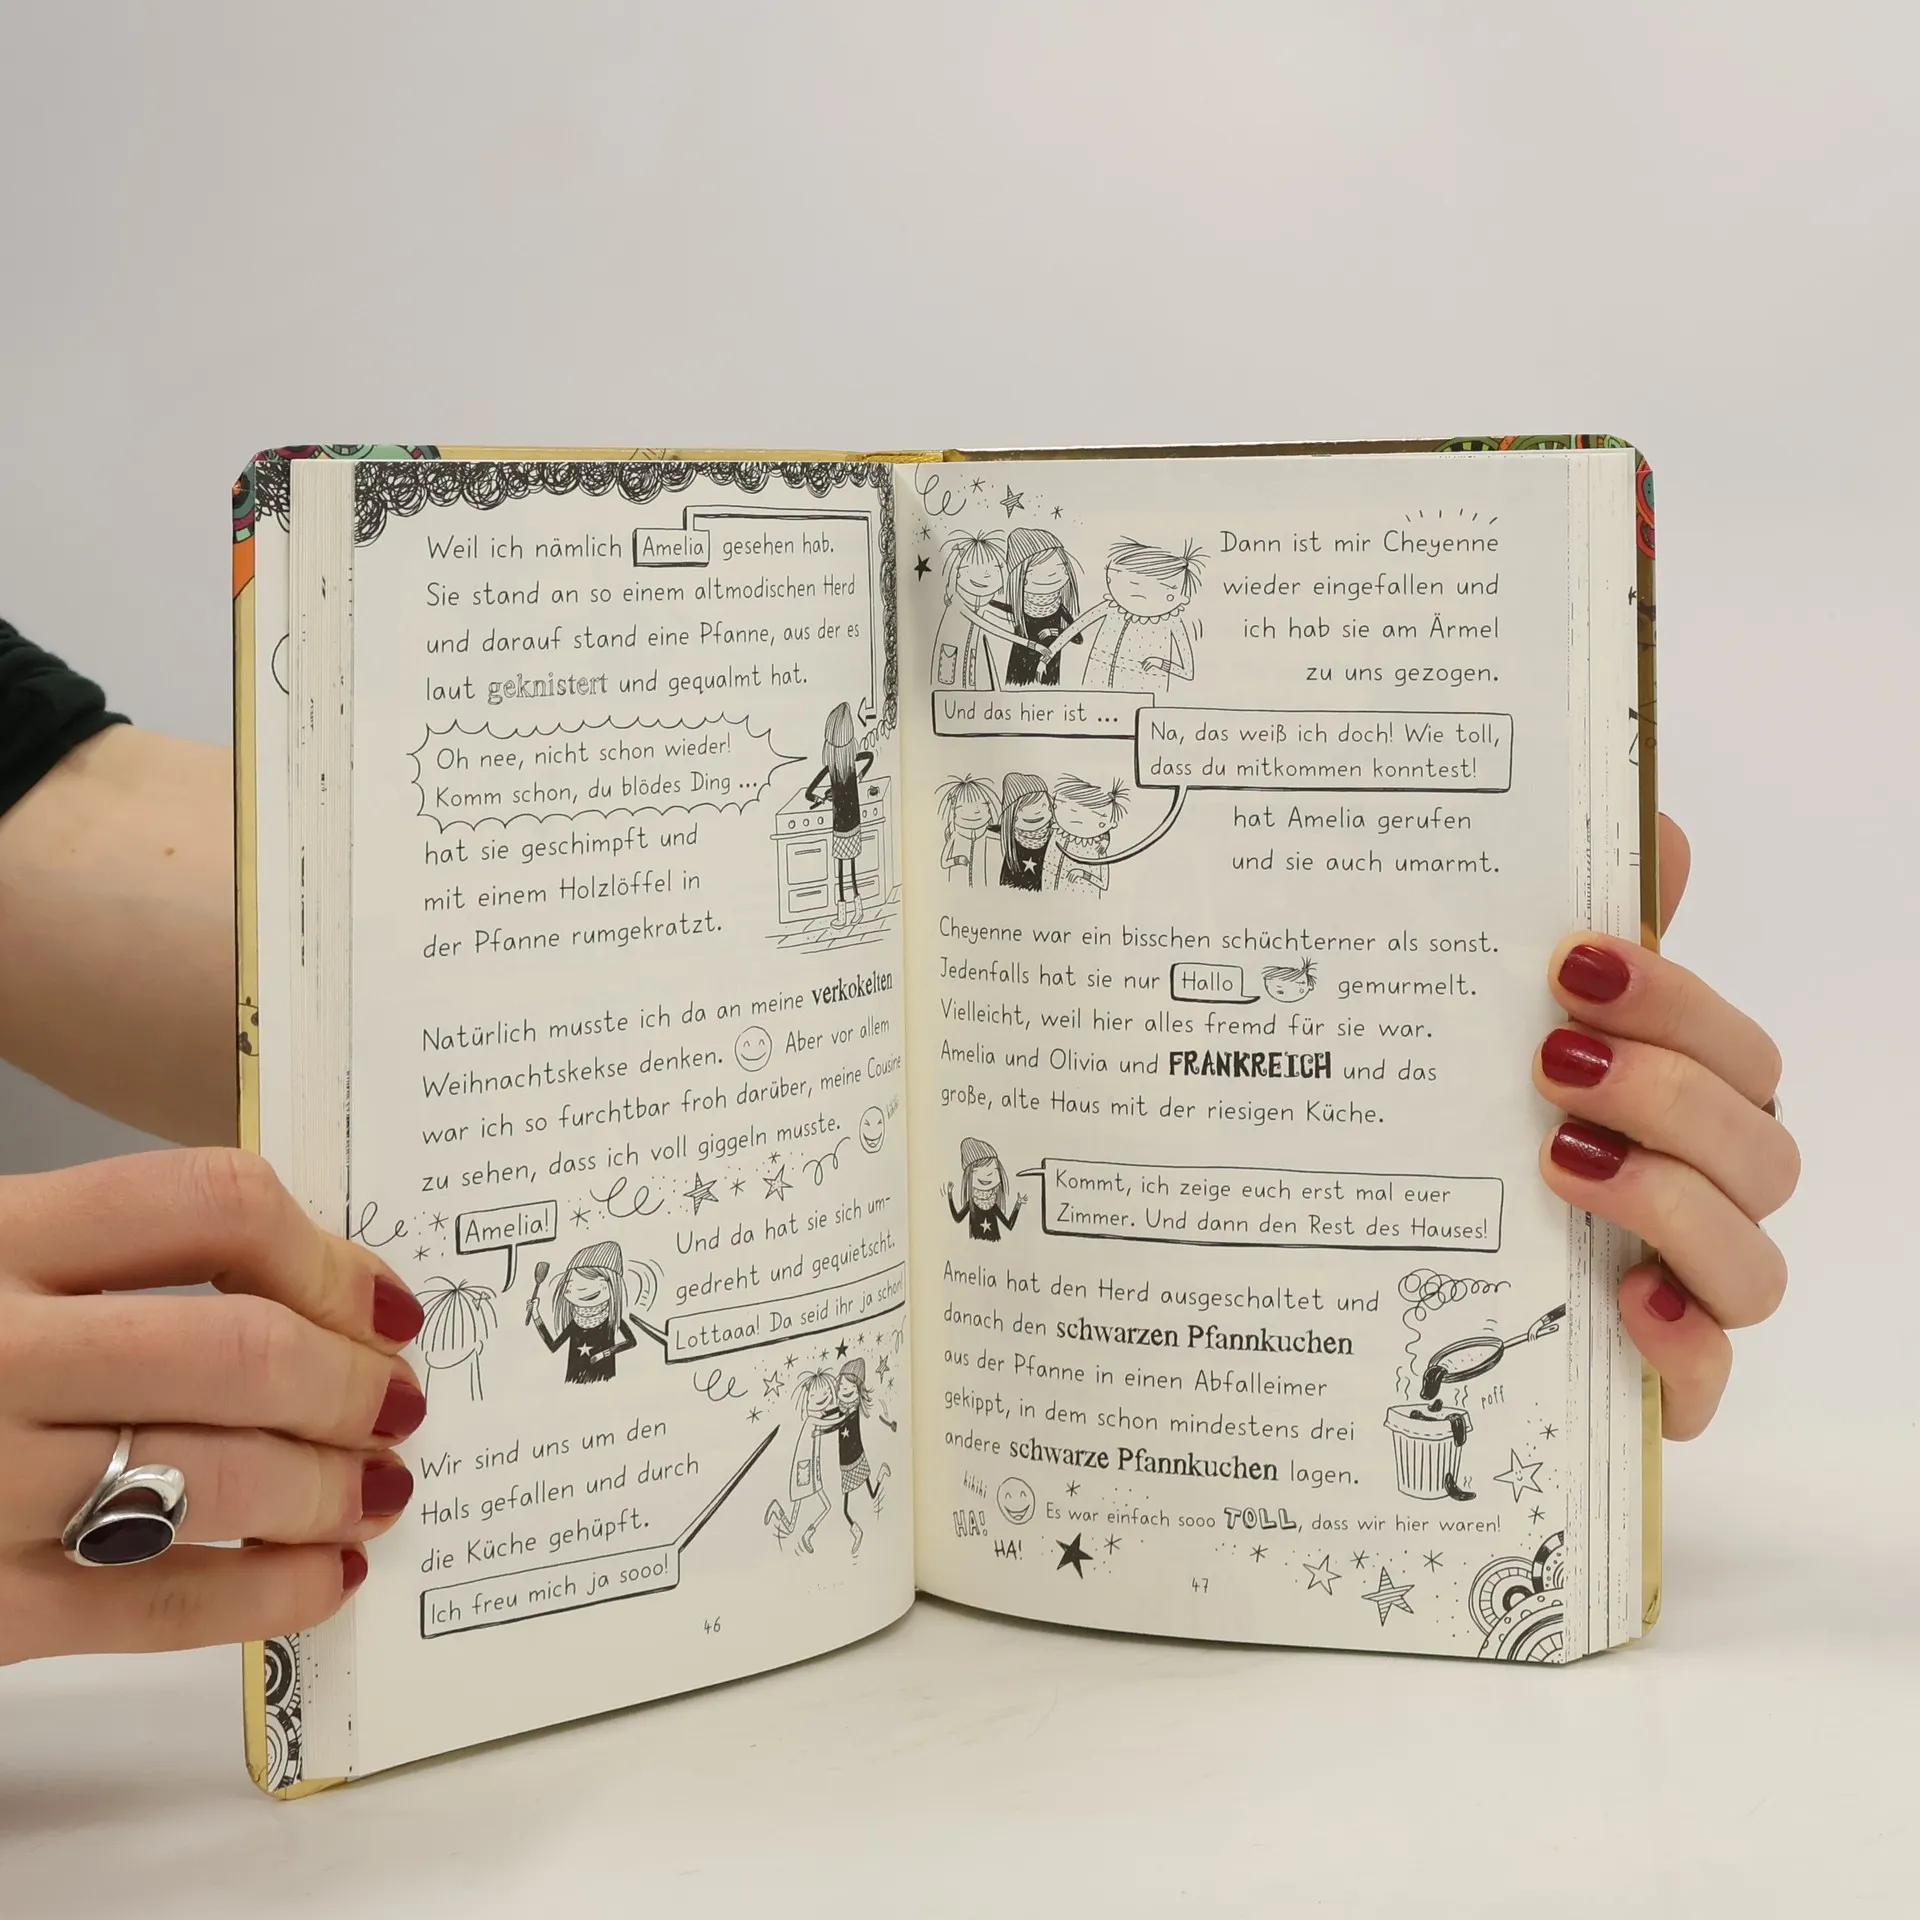 Weil ich nämlich Amelia gesehen hab.
Sie stand an so einem altmodischen Herd
und darauf stand eine Pfanne, aus der es
laut geknistert und gequalmt hat.
Oh nee, nicht schon wieder!
Komm schon, du blödes Ding ...
hat sie geschimpft und
mit einem Holzlöffel in
der Pfanne rumgekratzt.
Natürlich musste ich da an meine verkokelten
Weihnachtskekse denken. Aber vor allem
war ich so furchtbar froh darüber, meine Cousine
zu sehen, dass ich voll giggeln musste.
Amelia!
Und da hat sie sich um-
gedreht und gequietscht.
Lottaaa! Da seid ihr ja schon!
Wir sind uns um den
Hals gefallen und durch
die Küche gehüpft.
Ich freu mich ja sooo!
46
Dann ist mir Cheyenne
wieder eingefallen und
ich hab sie am Ärmel
zu uns gezogen.
Und das hier ist ...
Na, das weiß ich doch! Wie toll,
dass du mitkommen konntest!
hat Amelia gerufen
und sie auch umarmt.
Cheyenne war ein bisschen schüchterner als sonst.
Jedenfalls hat sie nur Hallo gemurmelt.
Vielleicht, weil hier alles fremd für sie war.
Amelia und Olivia und FRANKREICH und das
große, alte Haus mit der riesigen Küche.
Kommt, ich zeige euch erst mal euer
Zimmer. Und dann den Rest des Hauses!
Amelia hat den Herd ausgeschaltet und
danach den schwarzen Pfannkuchen
aus der Pfanne in einen Abfalleimer
gekippt, in dem schon mindestens drei
andere schwarze Pfannkuchen lagen.
poff
hihihi
HA!
HA!
Es war einfach sooo TOLL, dass wir hier waren!
47